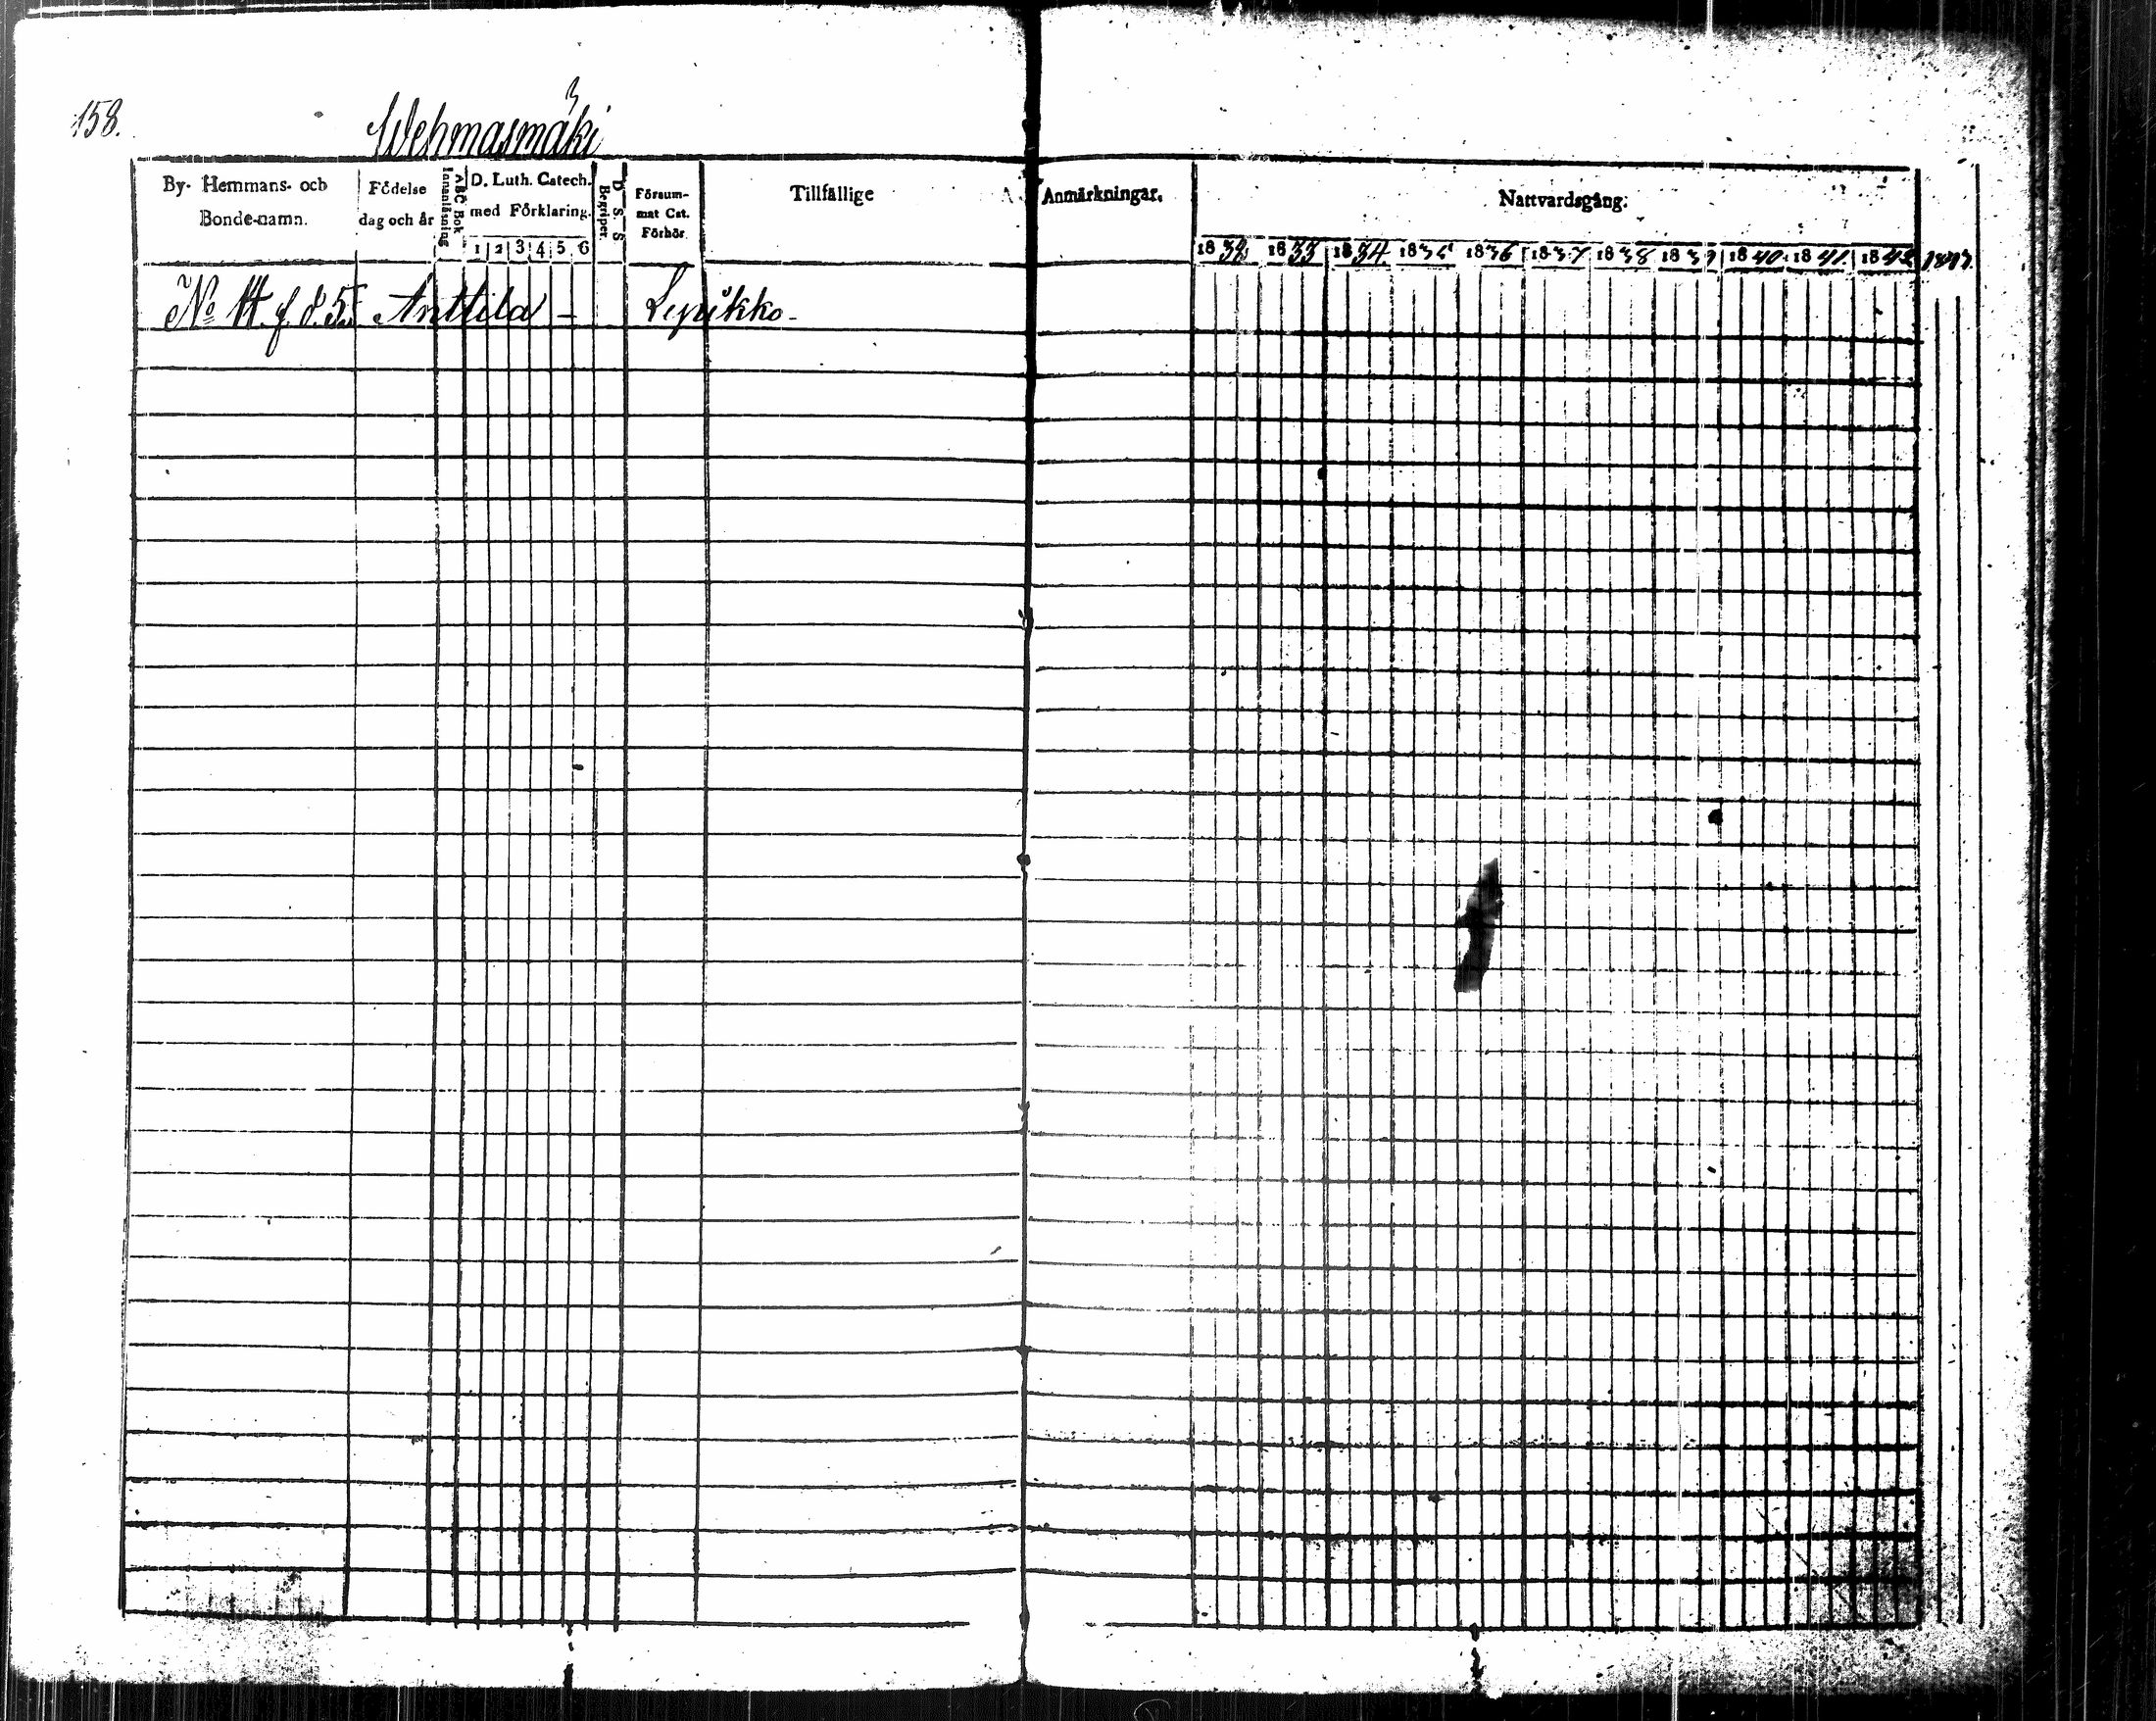 158.
Wehmasmäki
By- Hemmans- och Bonde-namn.
Födelse dag och år
Innanläsning
ABC Bok
D. Luth. Catech. med Förklaring.
1 2 3 4 5 6
D. S. S.
Begriper.
Försum-mat Cat. Förhör.
Tillfällige Anmärkningar.
Nattvardsgång.
1832 1833 1834 1835 1836 1837 1838 1839 1840 1841 1842 1843
No Anttila - Lepikko -